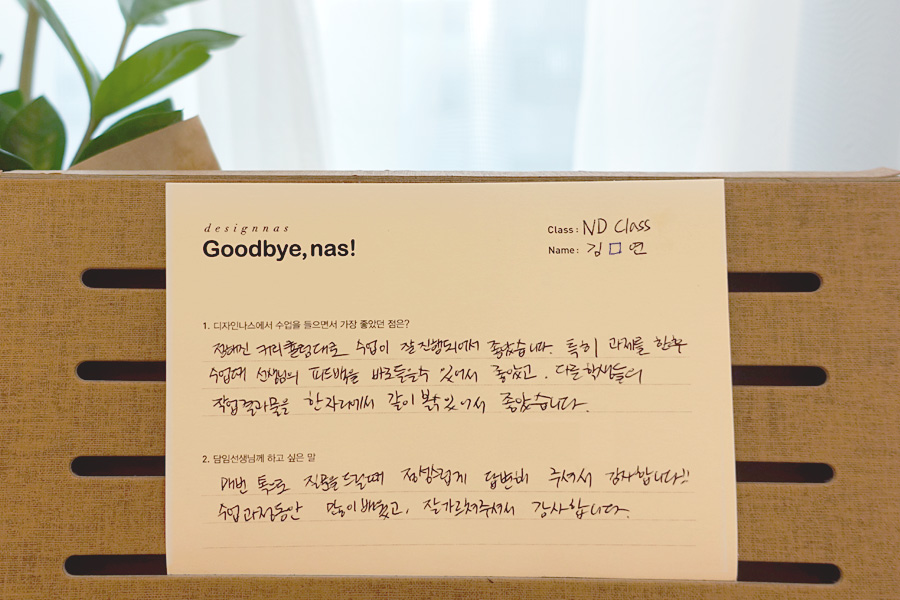 designnas
Goodbye, nas!
Class: ND Class
Name: 김□연
1. 디자인나스에서 수업을 들으면서 가장 좋았던 점은?
정해진 커리큘럼대로 수업이 잘 진행되어서 좋았습니다. 특히 과제를 한후
수업때 선생님의 피드백을 바로들을수 있어서 좋았고, 다른학생들의
작업결과물을 한자리에서 같이 볼수있어서 좋았습니다.
2. 담임선생님께 하고 싶은 말
매번 톡으로 질문을드릴때 정성스럽게 답변해 주셔서 감사합니다!!
수업과정동안 많이배웠고, 잘가르쳐주셔서 감사합니다.